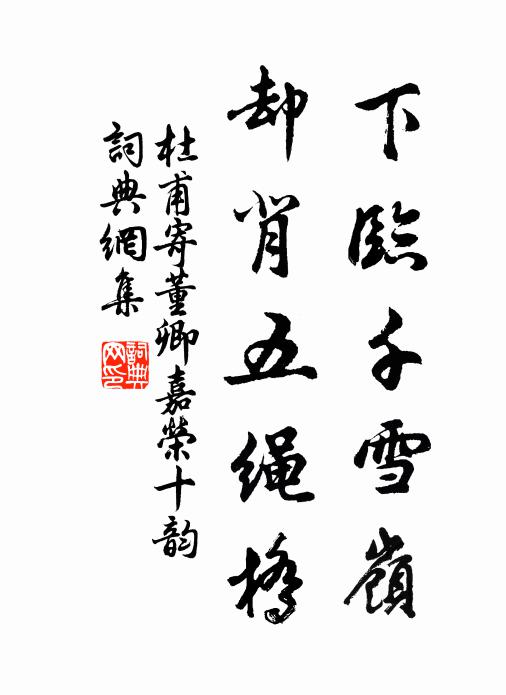 下臨千雪嶺
却背五绳橋
杜甫寄董卿嘉榮十韵
詞典網集
詞典网印